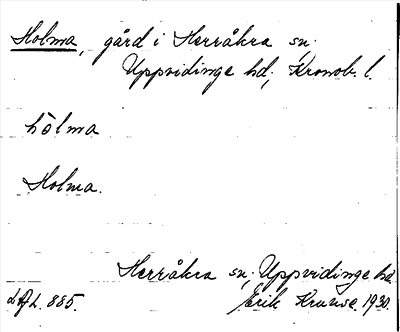 Holma, gård i Herråkra sn;
Uppvidinge hd, Kronob. l.
hòlma
Holma.
Herråkra sn; Uppvidinge hd.
885. Erik Kruuse. 1930.